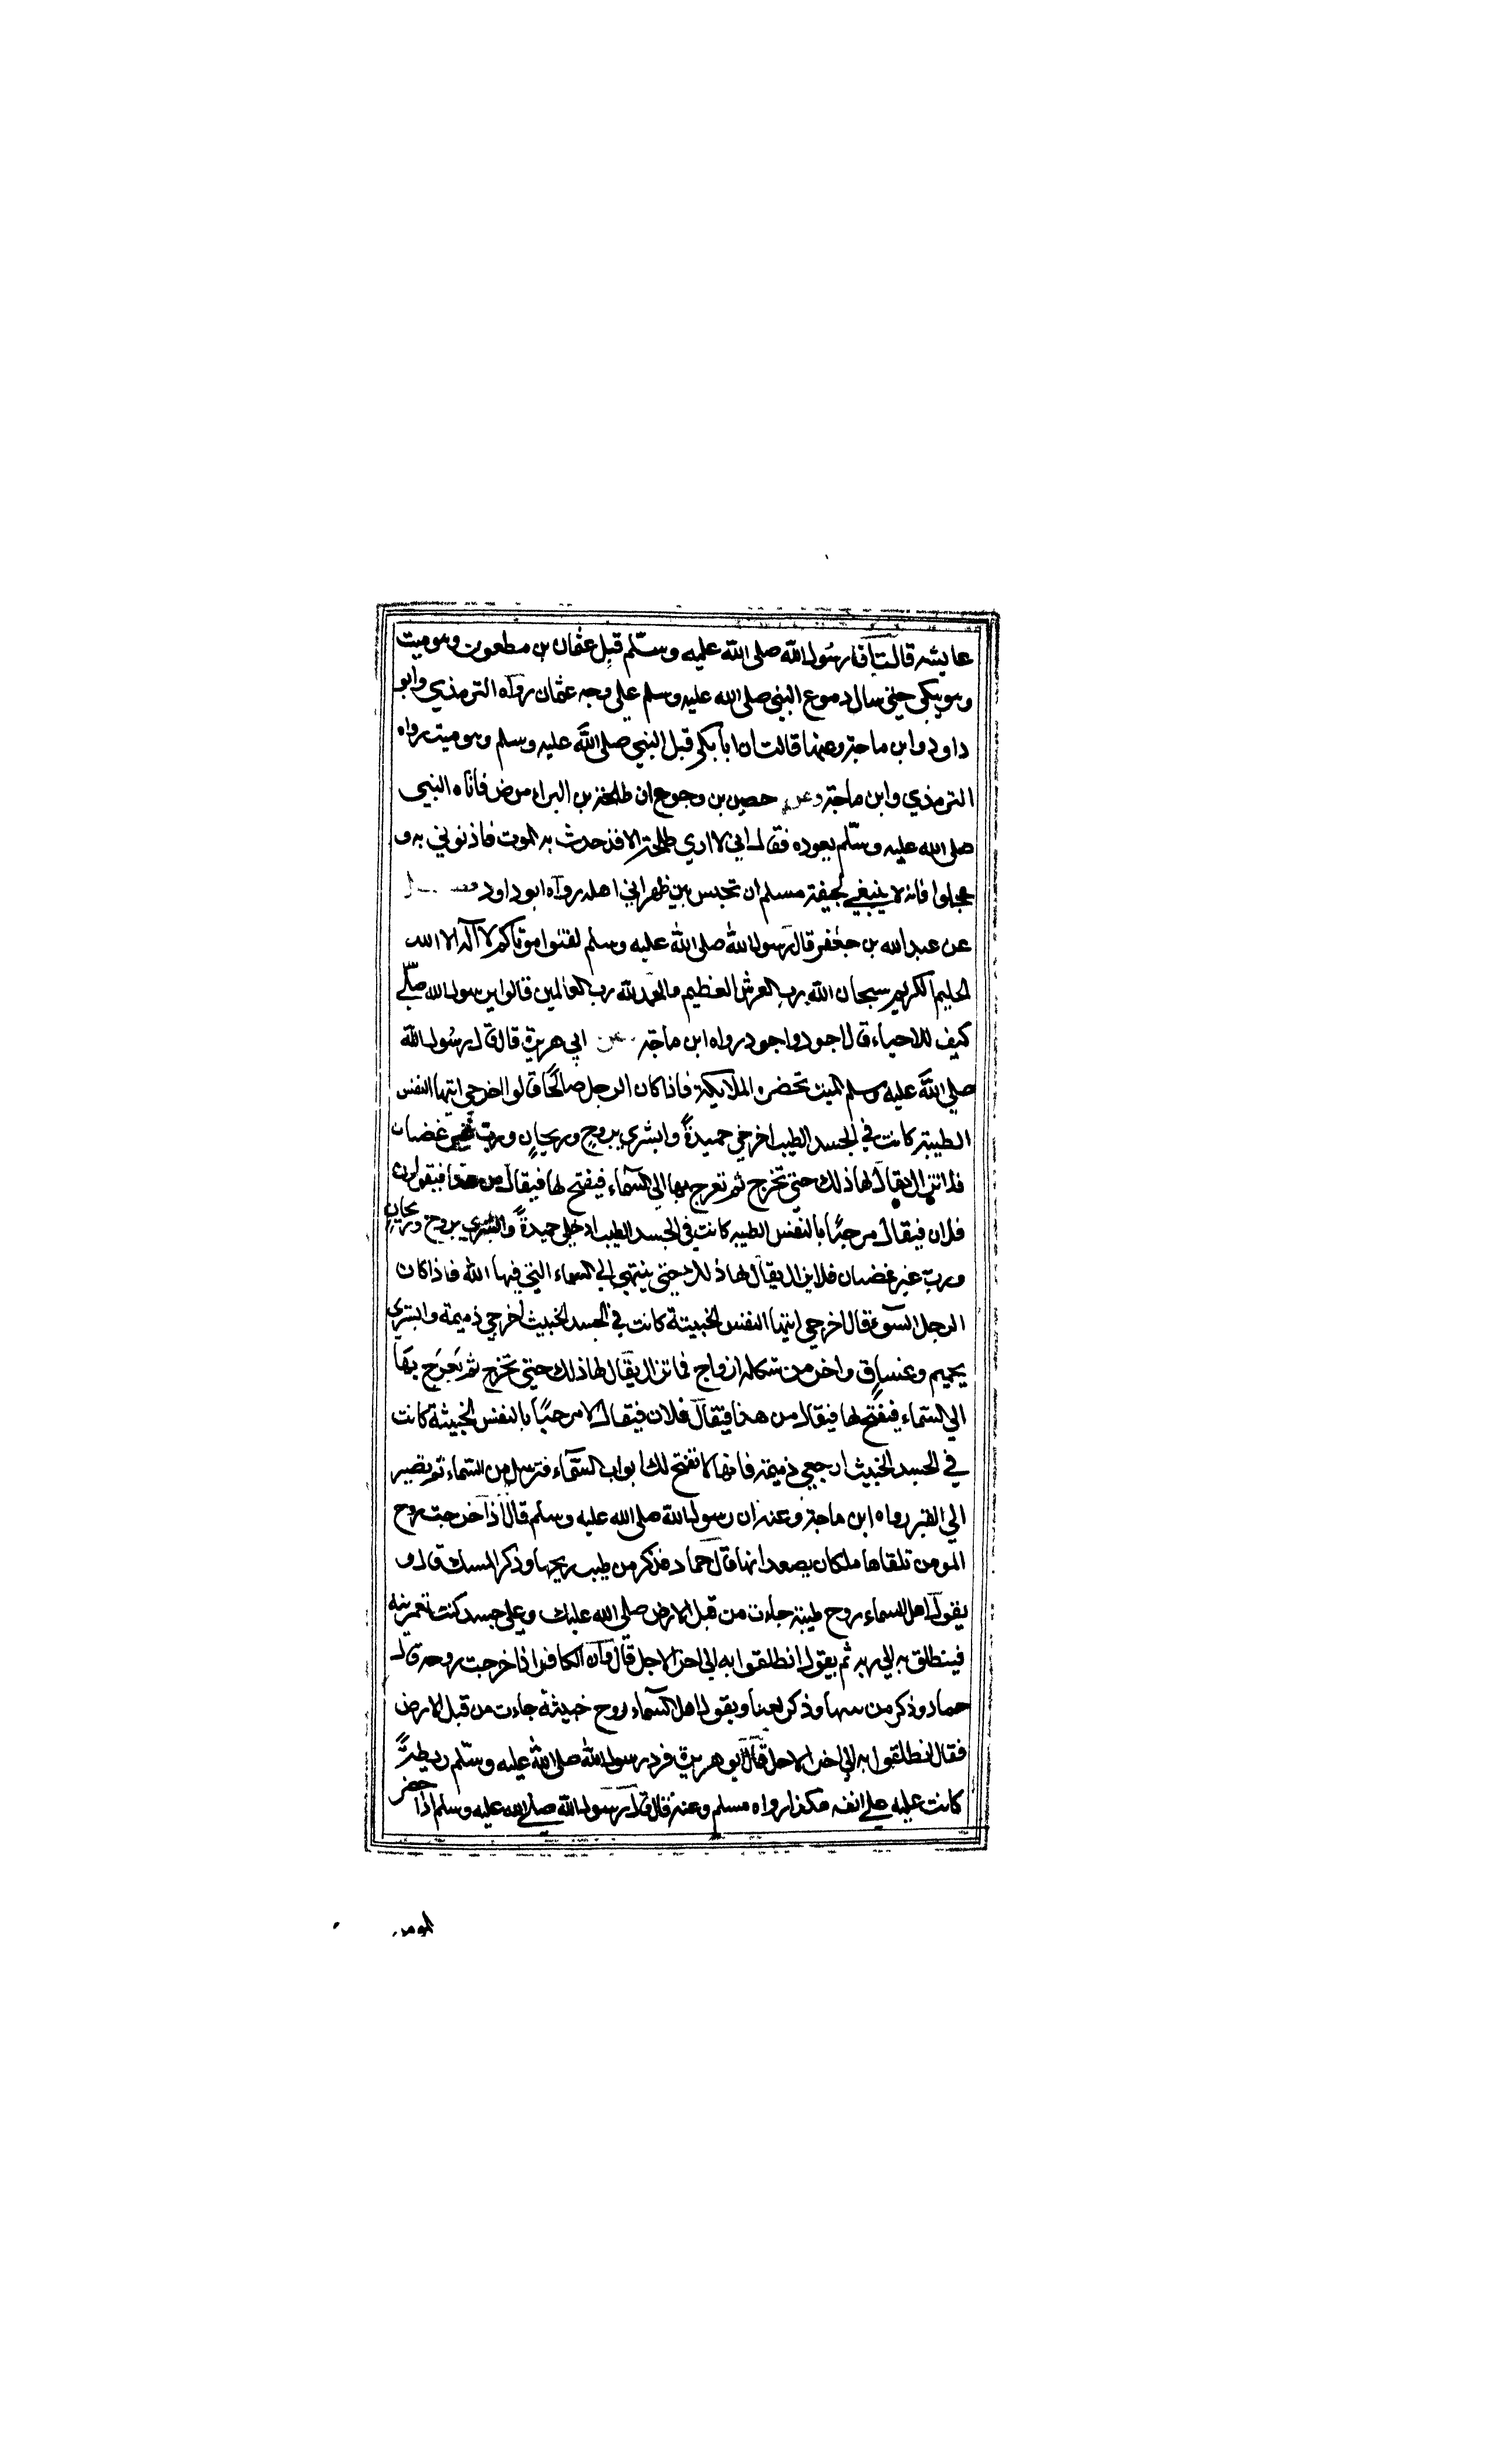 عايشه قالت ان رسول الله صلى الله عليه وسلم قبل عثمان بن مطعون وهو ميت
وهو يبكى حتي سال دموع النبي صلى الله عليه وسلم علي وجه عثمان رواه الترمذي وابو
داود وابن ماجة وعنها قالت ان ابا بكر قبل النبي صلى الله عليه وسلم وهو ميت رواه
الترمذي وابن ماجة وعن حصين بن وحوح ان طلحة بن البراء مرض فاتاه النبي
صلى الله عليه وسلم يعوده فقال اني لا اري طلحة الا قد حدث به الموت فاذنوني به و
عجلوا فانه لا ينبغي لجيفة مسلم ان تحبس بين ظهراني اهله رواه ابو داود
عن عبد الله بن جعفر قال رسول الله صلى الله عليه وسلم لقنوا موتاكم لا اله الا الله
الحليم الكريم سبحان الله رب العرش العظيم والحمد لله رب العالمين قالوا يرسول الله صلي
كيف للاحياء قال اجود واجود رواه ابن ماجة عن ابي هريرة قال قال رسول الله
صلي الله عليه وسلم الميت تحضره الملايكة فاذا كان الرجل صالحا قالوا اخرجي ايتها النفس
الطيبة كانت في الجسد الطيب اخرجي حميدة وابشري بروح وريحان ورب غير غضبان
فلا تزال يقال لها ذلك حتي تخرج ثم تعرج بها الي السماء فيفتح لها فيقال من هذا فيقولون
فلان فيقال مرحبا بالنفس الطيبه كانت في الجسد الطيب ادخلي حميدة وابشري بروح وريحان
ورب غير غضبان فلا يزال يقال لها ذلك حتي ينتهي الي السماء التي فيها الله فاذا كان
الرجل السوء قال اخرجي ايتها النفس الخبيثة كانت في الجسد الخبيث اخرجي ذميمة وابشري
بحميم وغساق واخر من شكله ازواج فما تزال يقال لها ذلك حتي تخرج ثم يعرج بها
الي السماء فيفتح لها فيقال من هذا فيقال فلان فيقال لا مرحبا بالنفس الخبيثة كانت
في الجسد الخبيث ارجعي ذميمة فانها لا تفتح لك ابواب السماء فترسل من السماء ثم يصير
الي القبر رواه ابن ماجة وعنه ان رسول الله صلى الله عليه وسلم قال اذا خرجت روح
المومن تلقاها ملكان يصعدانها قال حماد فذكر من طيب ريحها وذكر المسك قال و
يقول اهل السماء روح طيبة جاءت من قبل الارض صلى الله عليك وعلي جسد كنت تعمرينه
فينطلق به الي ربه ثم يقول انطلقوا به الي اخر الاجل قال وان الكافر اذا خرجت روحه قال
حماد وذكر من نتنها وذكر لعنا ويقول اهل السماء روح خبيثة جاءت من قبل الارض
فقال انطلقوا به الي اخر الاجل قال ابو هريرة فرد رسول الله صلى الله عليه وسلم ريطة
كانت عليه علي انفه هكذا رواه مسلم وعنه قال قال رسول الله صلى الله عليه وسلم اذا حضر
المومن